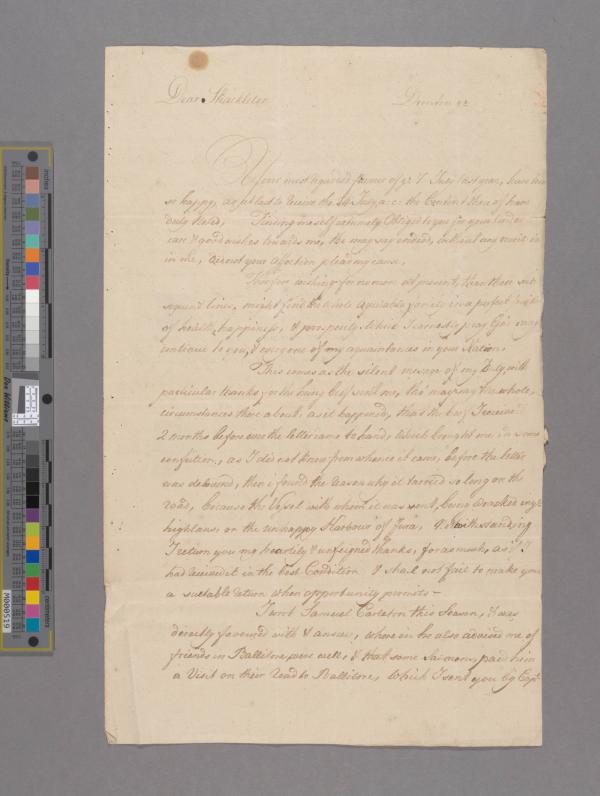 Dear Shackleton
Your most regarded favour of ye 7 July last year, have been
so happy, as
duly Noted, Finding myself extremely Obliged to you for your tender
care & good wishes towards me, the may say indeed, without any merit in
in me, let not your affection plead my cause.
Therefore wishing for no more at present, than these sub
sequent lines, might find the whole agreable family in a perfect
of health, happiness, & prosperity, which I earnestly pray God may
continue to you, & every one of my aquaintances in your Nation.
This comes as the silent messenger of my Duty, with
particular thanks for the hung beef sent me, tho' may say the whole
circumstances there about, as it happened, that the beef I received
2 months before ever the letter came to hand, which brought me in some
confusion, as I did not know from whence it came, before the letter
was delivered, then i found the reason why it tarried so long on the
road, because the Vessel with whom it was sent, being wrecked in ye
highlans, or the unhappy Harbour of
I return you my heartily & unfeigned thanks, for as much, as if I
had received it in the best Condition. I shall not fail to make you
a suetable return when opportunity permits -
I wrote Samuel Carleton this Season, & was
derectly favoured with & answer, where in he also advised me of
friends in Ballitore, were well, & that some paid him
a Visit on their road to Ballitore, Which I sent you by Capt